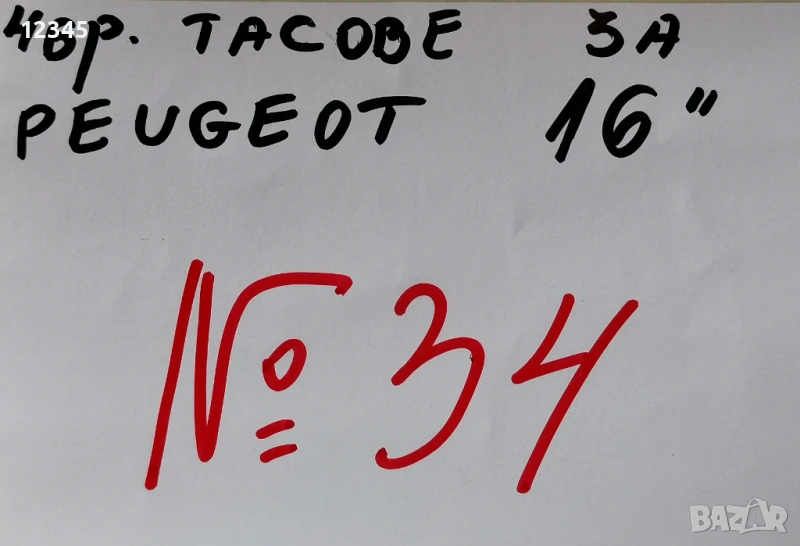 12345
4бр. ТАСОВЕ ЗА
PEUGEOT 16"
№ 34
BAZAR